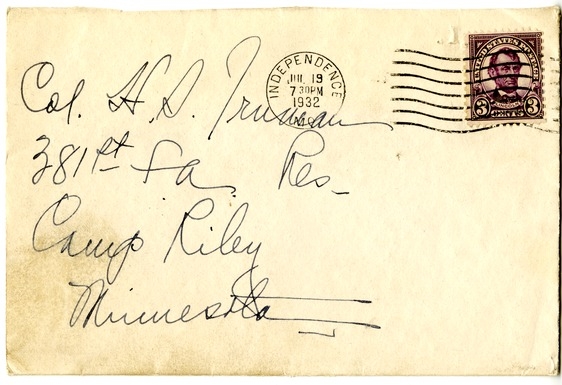 INDEPENDENCE
JUL 19
7 30PM
1932
MO.
UNITED STATES POSTAGE
3 CENTS 3
Col. H. S. Truman
381st F.a. Res_
Camp Riley
Minnesota